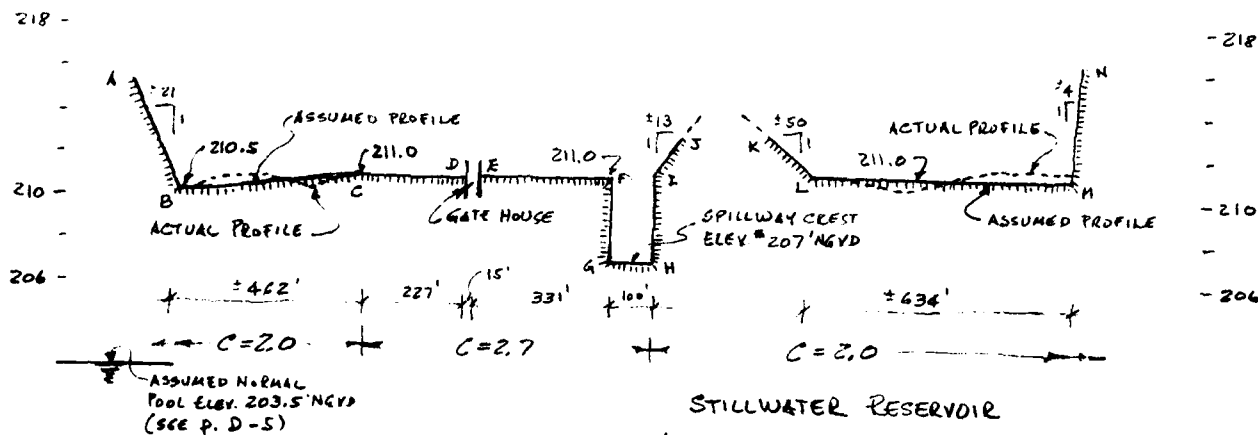 218
218
A
±21
1
ASSUMED PROFILE
210.5
211.0
D
E
211.0
F
±13
1
J
I
K
±50
1
ACTUAL PROFILE
±4
1
N
211.0
L
M
210
B
C
ACTUAL PROFILE
GATE HOUSE
SPILLWAY CREST
ELEV. 207' NGVD
ASSUMED PROFILE
210
206
G
H
206
±462'
227'
15'
331'
100'
±634'
C=2.0
C=2.7
C=2.0
ASSUMED NORMAL
POOL ELEV. 203.5' NGVD
(SEE p. D-5)
STILLWATER RESERVOIR